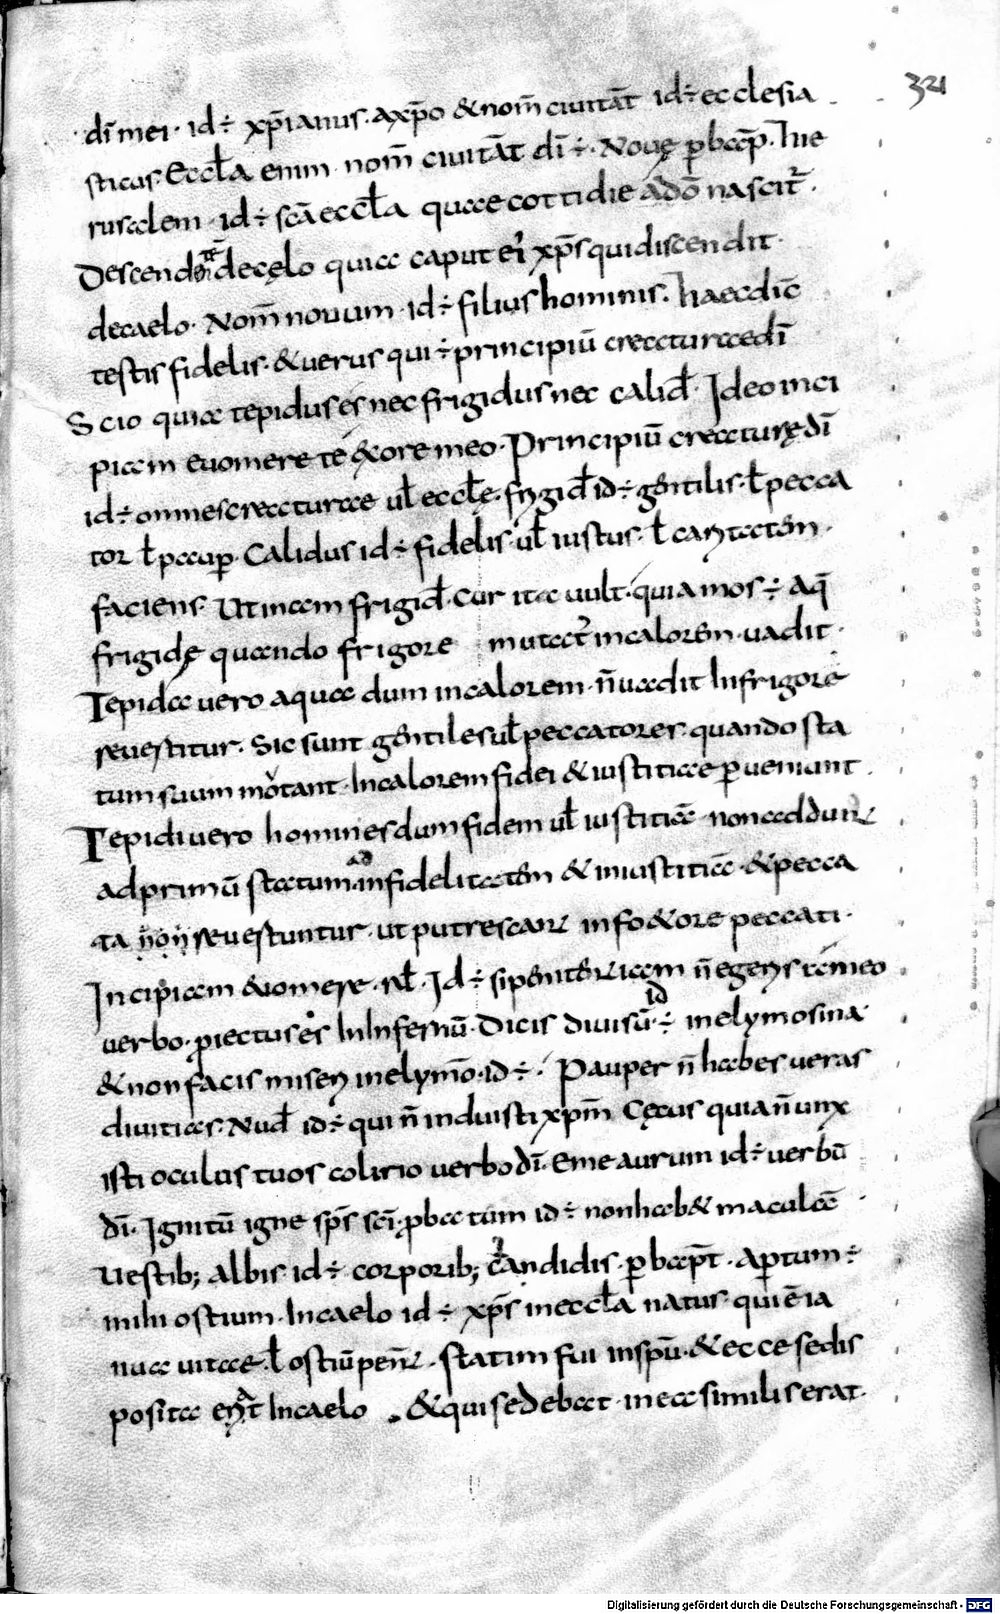 321
dī mei · id÷ xp̄ianus · a xp̄o & nom̄ ciuitāt id÷ ecclesia
sticus · Eccl̄a enim nom̄ ciuitāt dī ÷ · Nouę p bap̄ · Hie
rusalem · id÷ sc̄a eccl̄a quae cottidie ad dō nascit̄ ·
Descend de cęlo quia caput ei xp̄s qui discendit ·
de caelo · Nom̄ nouum · id÷ filius hominis · Haec dic̄
testis fidelis · & uerus qui ÷ principiū creaturae dī
Scio quia tepidus és nec frigidus nec calid̄ · Ideo inci
piam euomere te & ore meo · Principiū creaturę dī
id÷ omnes creaturae ul̄ eccl̄ę · frigid̄ id÷ gentilis · l̄ pecca
tor l̄ paup · Calidus id÷ fidelis · ul̄ iustus · l̄ caritatem ·
faciens · Utinam frigid̄ · Cur ita uult · quia mos ÷ aq̄
frigidę quando frigore mutat̄ in calorem · uadit ·
Tepidae uero aquae dum in calorem · n̄ uadit In frigore
reuertitur · Sic sunt gentiles ul̄ peccatores · quando sta
tum suum mōtant · In calorem fidei & iustitiae p ueniunt
Tepidi uero homines dum fidem ul̄ iustitiā · non addunt
ad primū statum · ad infidelitatem & iniustitiā · & pecca
ta non reuestuntur · ut putrescant in fo&ore peccati ·
Incipiam euomere · rl̄ · Id÷ si penitentiam n̄ egeris te meo
uerbo · piectus és In Infernū · Dicis diuisū · id ÷ in elymosina
& non facis miseri in elymō · id÷ · Pauper n̄ habes ueras
diuitias · Nud̄ id÷ qui n̄ induisti xp̄m Cęcus quia n̄ unx
isti oculus tuos colirio uerbo dī · Eme aurum id÷ uerbū
dī · Ignitū igne sp̄s sc̄i · pbatum id÷ non hab& maculā ·
Uestib; albis · id÷ corporib; candidis · p bap̄t · aptum ÷
mihi ostium · In caelo id÷ xp̄s in eccl̄a natus · qui ē ia
nua uitae · l̄ ostiū peni · Statim fui in sp̄u · & ecce sedis
posita erat In caelo · & qui sedebat in ea similis erat ·
Digitalisierung gefördert durch die Deutsche Forschungsgemeinschaft - DFG